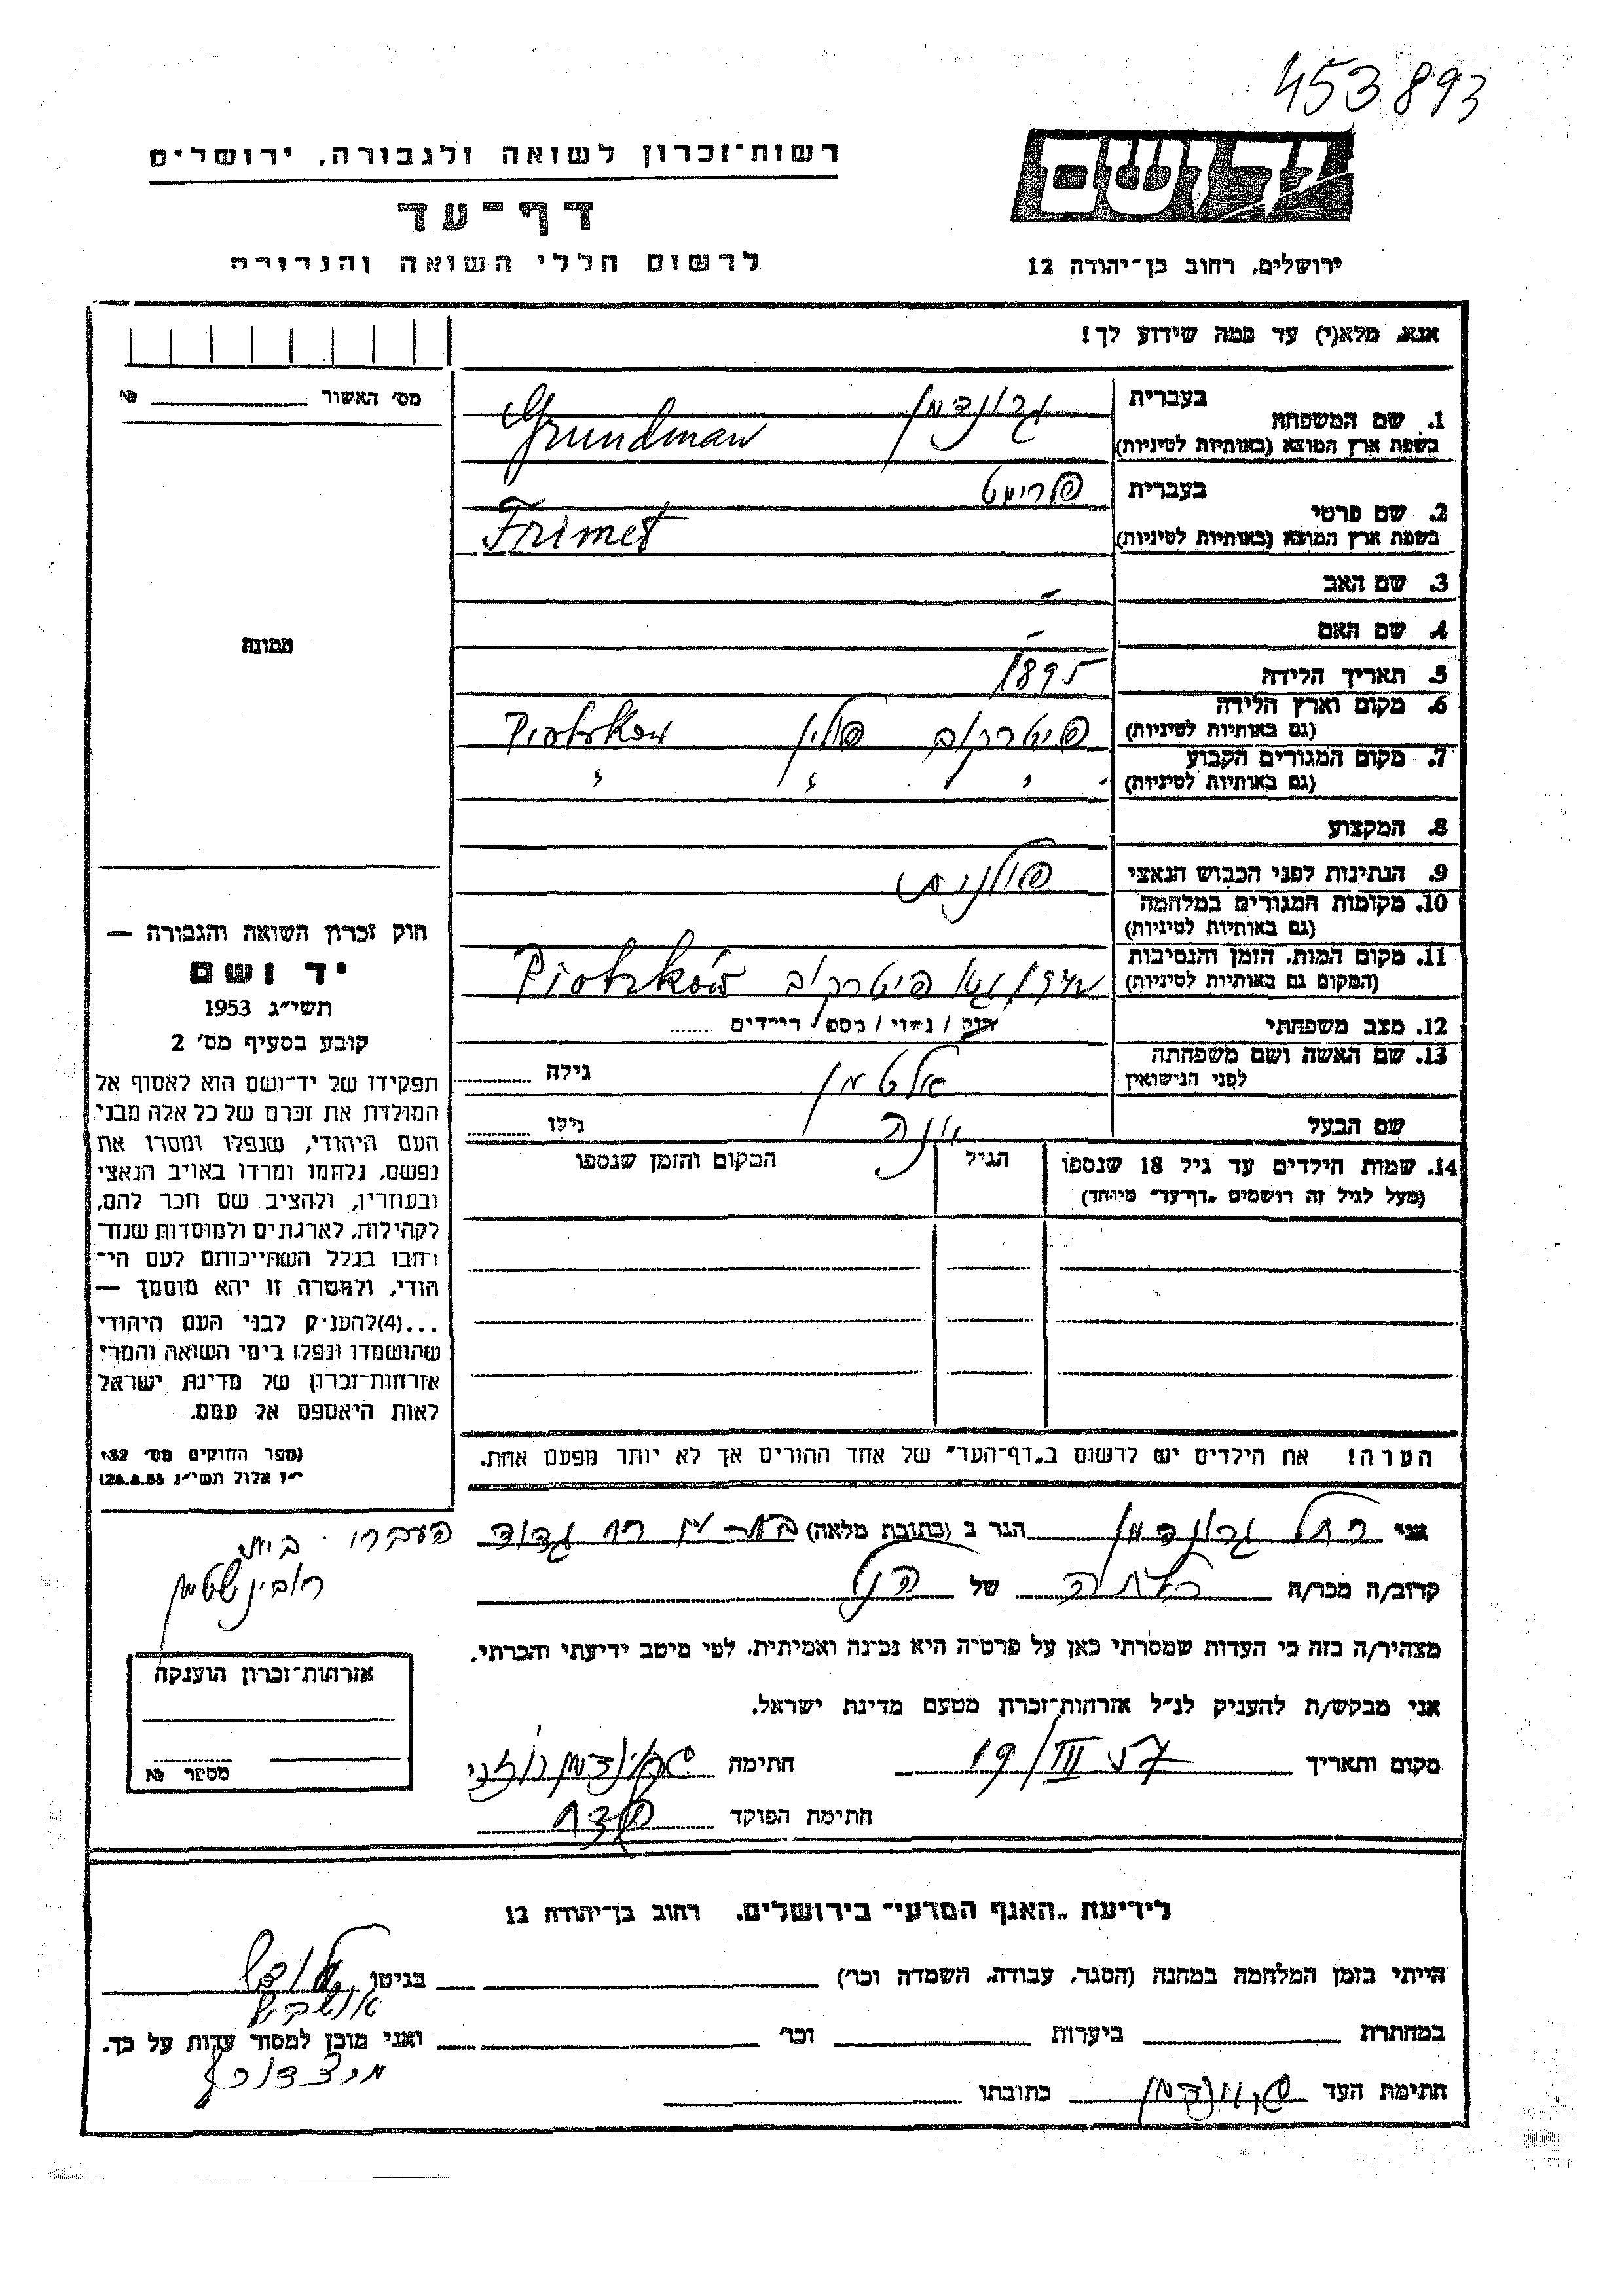 453893
רשות־זכרון לשואה ולגבורה, ירושלים
יד ושם
דף־עד
לרשום חללי השואה והגבורה
ירושלים, רחוב בן־יהודה 12
אנא, מלא(י) עד כמה שידוע לך!
מס׳ האשור № 
1. שם המשפחה בעברית גרונדמן
בשפת ארץ המוצא (באותיות לטיניות) Grundman
2. שם פרטי בעברית פרימט
בשפת ארץ המוצא (באותיות לטיניות) Frimet
3. שם האב -
4. שם האם -
תמונה
5. תאריך הלידה 1895
6. מקום וארץ הלידה
(גם באותיות לטיניות) פיטרקוב פולין Piotrkow
7. מקום המגורים הקבוע
(גם באותיות לטיניות) " " " "
8. המקצוע
9. הנתינות לפני הכבוש הנאצי פולנית
10. מקומות המגורים במלחמה
(גם באותיות לטיניות)
11. מקום המות, הזמן והנסיבות
(המקום גם באותיות לטיניות) גטו פיטרקוב Piotrków
12. מצב משפחתי רווק / נשוי / מספר הילדים
13. שם האשה ושם משפחתה
לפני הנישואין אלטמן גילה
שם הבעל יונה גילו
14. שמות הילדים עד גיל 18 שנספו הגיל המקום והזמן שנספו
(מעל לגיל זה רושמים „דף־עד״ מיוחד)
חוק זכרון השואה והגבורה —
יד ושם
תשי״ג 1953
קובע בסעיף מס׳ 2
תפקידו של יד־ושם הוא לאסוף אל
המולדת את זכרם של כל אלה מבני
העם היהודי, שנפלו ומסרו את
נפשם, נלחמו ומרדו באויב הנאצי
ובעוזריו, ולהציב שם וזכר להם,
לקהילות, לארגונים ולמוסדות שנח־
רבו בגלל השתייכותם לעם הי־
הודי, ולמטרה זו יהא מוסמך —
...(4)להעניק לבני העם היהודי
שהושמדו ונפלו בימי השואה והמרי
אזרחות־זכרון של מדינת ישראל
לאות היאספם אל עמם.
(ספר החוקים מס׳ 132
י״ז אלול תשי״ג 28.8.53)
הערה! את הילדים יש לרשום ב„דף־העד״ של אחד ההורים אך לא יותר מפעם אחת.
אני רחל גרונדמן הגר ב (כתובת מלאה) בת־ים רח גדוד העברי בית
רובינשטיין
קרוב/ה מכר/ה של הנ״ל
מצהיר/ה בזה כי העדות שמסרתי כאן על פרטיה היא נכונה ואמיתית, לפי מיטב ידיעתי והכרתי.
אני מבקש/ת להעניק לנ״ל אזרחות־זכרון מטעם מדינת ישראל.
אזרחות־זכרון הוענקה
מספר №
מקום ותאריך 19/III 57 חתימה
חתימת הפוקד
לידיעת „האגף המדעי״ בירושלים, רחוב בן־יהודה 12
הייתי בזמן המלחמה במחנה (הסגר, עבודה, השמדה וכו׳) בגיטו לודז׳
אושביץ
במחתרת ביערות וכו׳ ואני מוכן למסור עדות על כך.
חתימת העד גרונדמן כתובתו